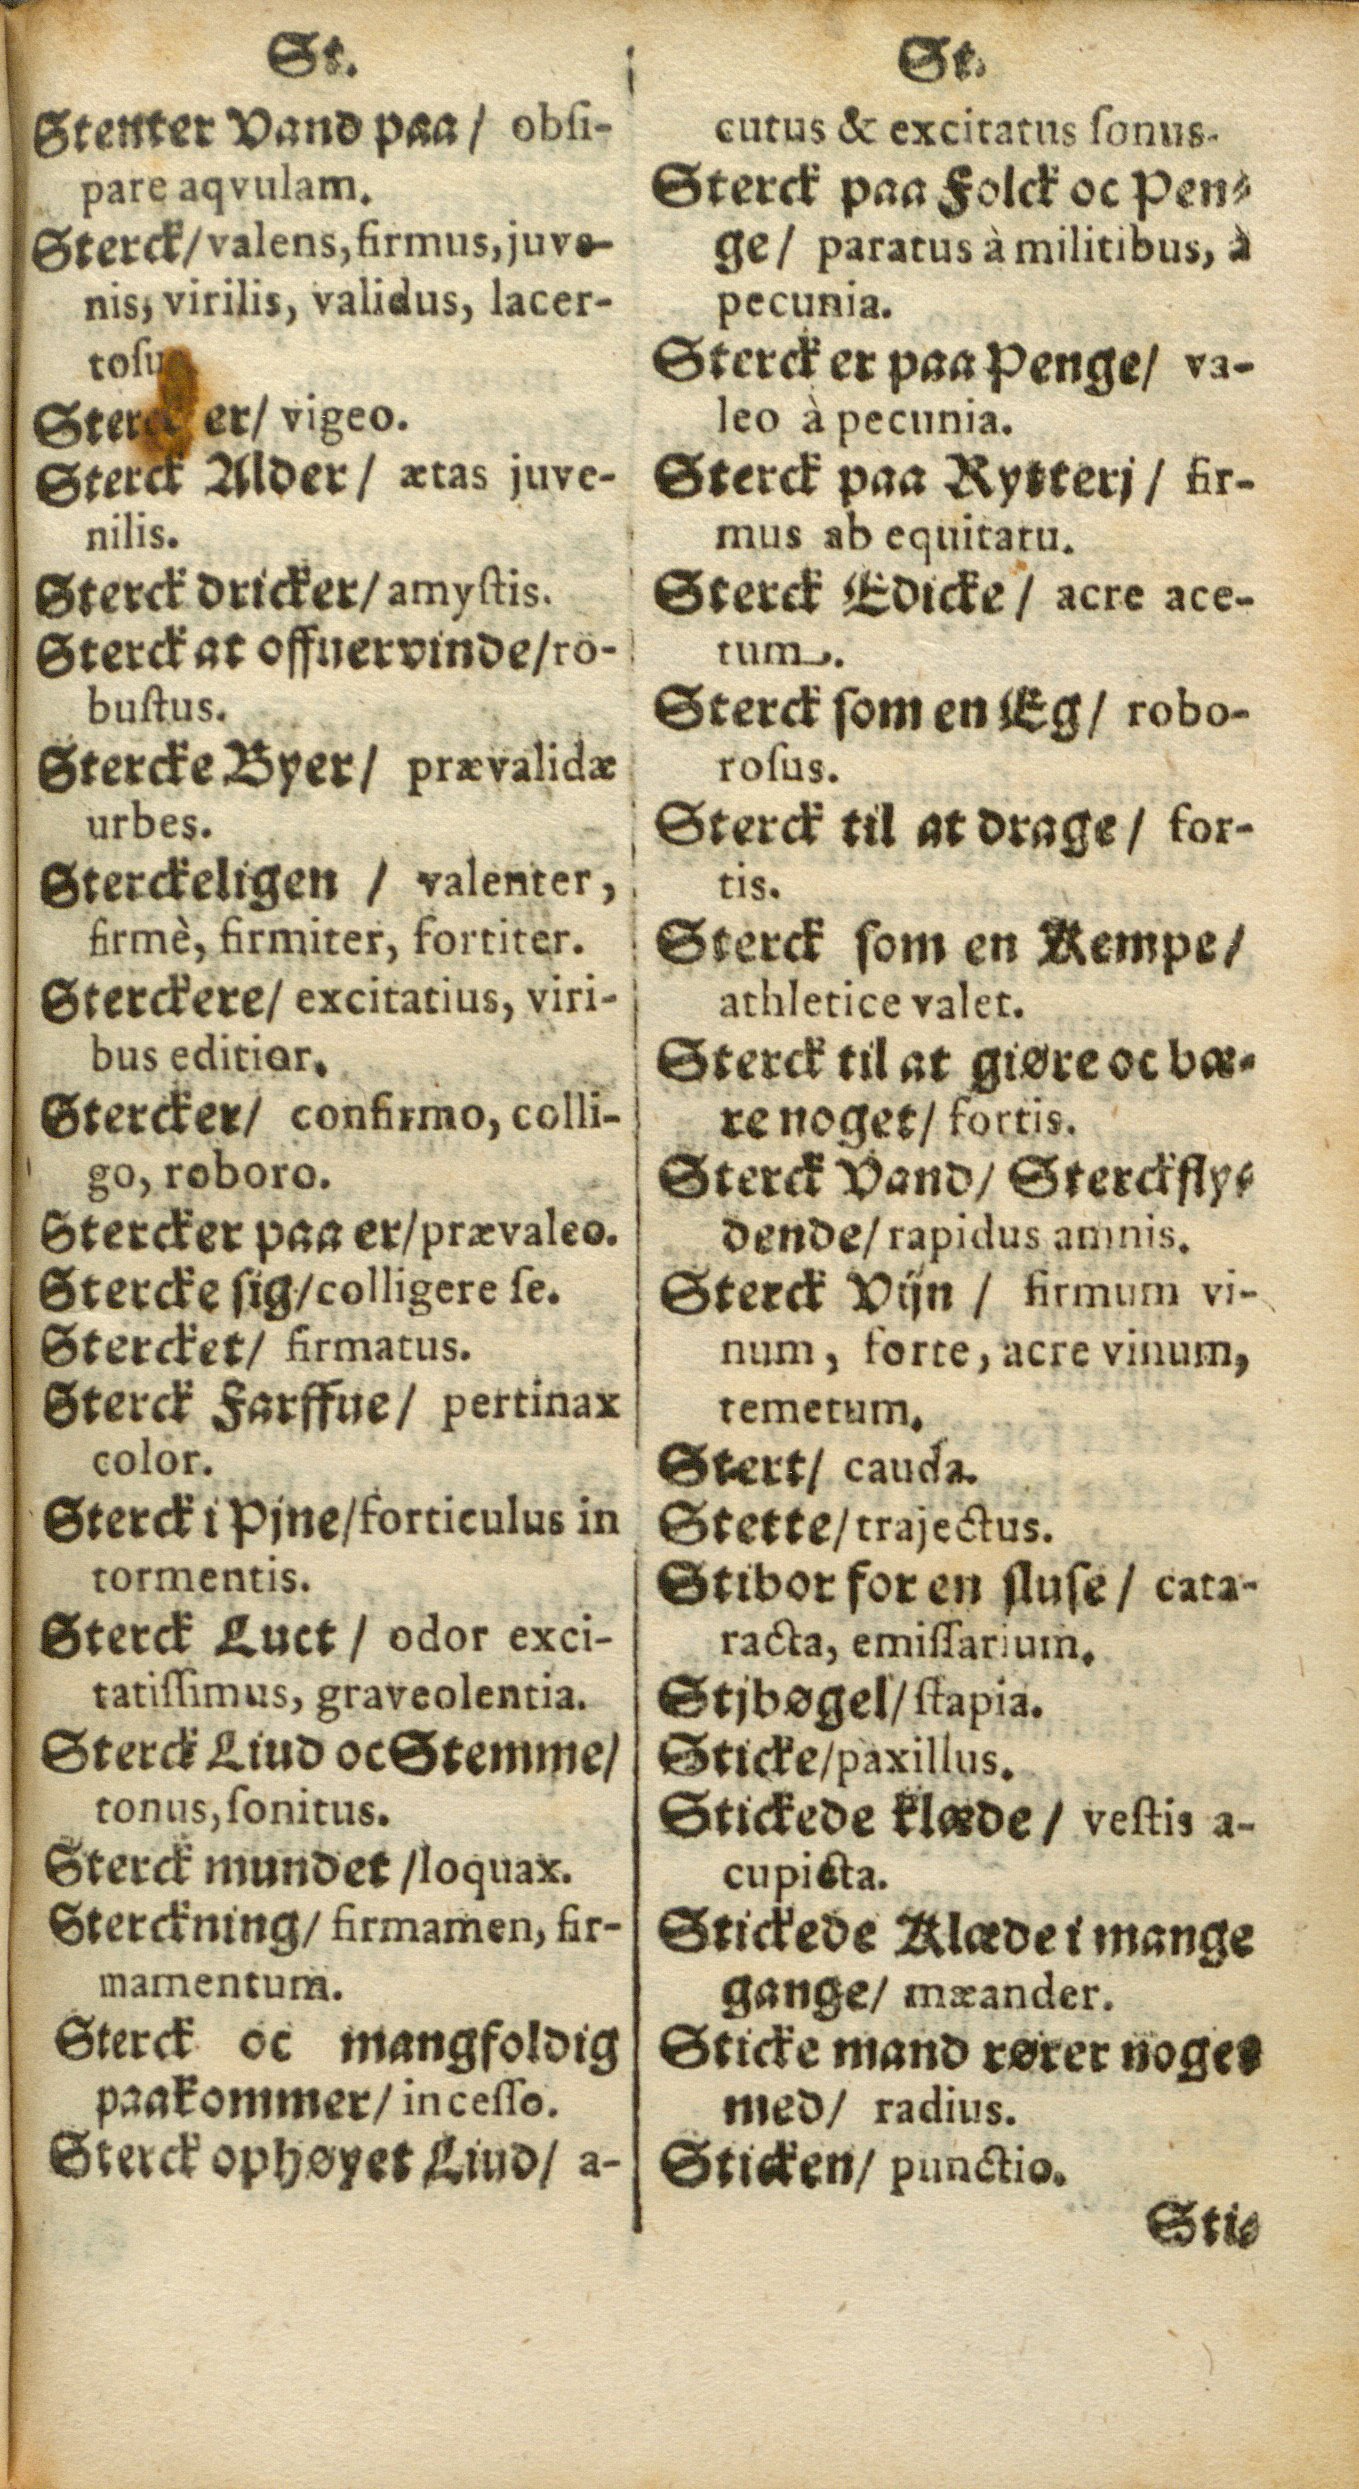 St.
Stenter Vand paa / obſi-
pare aqvulam.
Sterck / valens, firmus, juve-
nis, virilis, validus, lacer-
toſu
Sterck er / vigeo.
Sterck Alder / ætas juve-
nilis.
Sterck dricker / amyſtis.
Sterck at offuervinde / ro-
buſtus.
Stercke Byer / prævalidæ
urbes.
Sterckeligen / valenter,
firmè, firmiter, fortiter.
Sterckere / excitatius, viri-
bus editior.
Stercker / confirmo, colli-
go, roboro.
Stercker paa er / prævaleo.
Stercke sig / colligere ſe.
Stercket / firmatus.
Sterck Farffue / pertinax
color.
Sterck i Pjne / forticulus in
tormentis.
Sterck Luct / odor exci-
tatiſſimus, graveolentia.
Sterck Liud oc Stemme /
tonus, ſonitus.
Sterck mundet / loquax.
Sterckning / firmamen, fir-
mamentum.
Sterck oc mangfoldig
paakommer / inceſſo.
Sterck ophøyet Liud / a-
St.
cutus & excitatus ſonus.
Sterck paa Folck oc Pen-
ge / paratus à militibus, à
pecunia.
Sterck er paa Penge / va-
leo à pecunia.
Sterck paa Rytterj / fir-
mus ab equitatu.
Sterck Edicke / acre ace-
tum.
Sterck ſom en Eg / robo-
roſus.
Sterck til at drage / for-
tis.
Sterck ſom en Kempe /
athletice valet.
Sterck til at giøre oc bæ-
re noget / fortis.
Sterck Vand / Sterckfly-
dende / rapidus amnis.
Sterck Vijn / firmum vi-
num, forte, acre vinum,
temetum.
Stert / cauda.
Stette / trajectus.
Stibor for en ſluſe / cata-
racta, emiſſarium.
Stjbøgel / ſtapia.
Sticke / paxillus.
Stickede klæde / veſtis a-
cupicta.
Stickede Klæde i mange
gange / mæander.
Sticke mand rører noget
med / radius.
Sticken / punctio.
Sti-